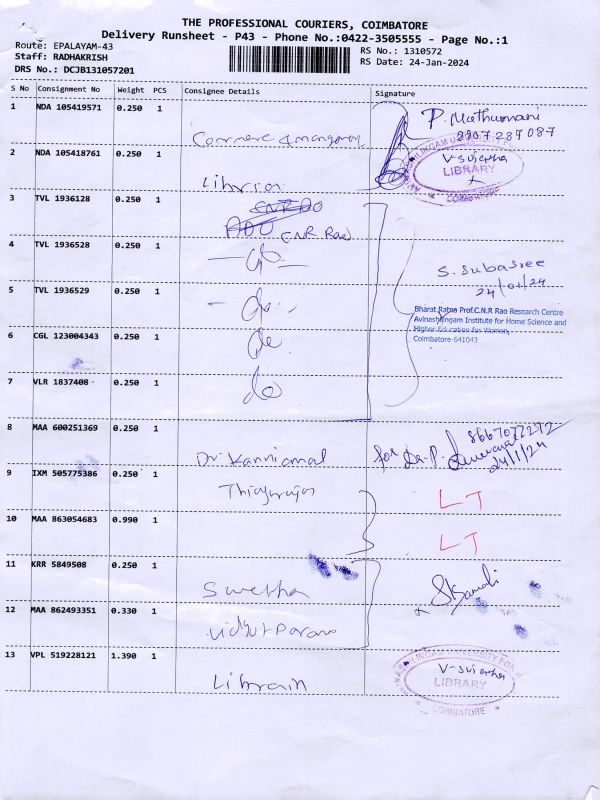 THE PROFESSIONAL COURIERS, COIMBATORE
Delivery Runsheet - P43 - Phone No.:0422-3505555 - Page No.:1
Route: EPALAYAM-43
RS No.: 1310572
Staff: RADHAKRISH
RS Date: 24-Jan-2024
DRS No.: DCJB131057201
S No Consignment No Weight PCS Consignee Details Signature
1 NDA 105419571 0.250 1
P. Muthumani
8807 289 087
2 NDA 105418761 0.250 1
LIBRARY
COIMBATORE
3 TVL 1936128 0.250 1
CNR Rao
4 TVL 1936528 0.250 1
do
S. Subasree
24/01/24
5 TVL 1936529 0.250 1
do
Bharat Ratna Prof.C.N.R Rao Research Centre
Avinashilingam Institute for Home Science and
Higher Education for Women,
Coimbatore-641043
6 CGL 123004343 0.250 1
do
7 VLR 1837408 0.250 1
do
8 MAA 600251369 0.250 1
Dr Kanniamal
for Dr. P.
8667072272
24/1/24
9 IXM 505775386 0.250 1
LT
10 MAA 863054683 0.990 1
LT
11 KRR 5849508 0.250 1
Swetha
12 MAA 862493351 0.330 1
13 VPL 519228121 1.390 1
Librain
LIBRARY
COIMBATORE